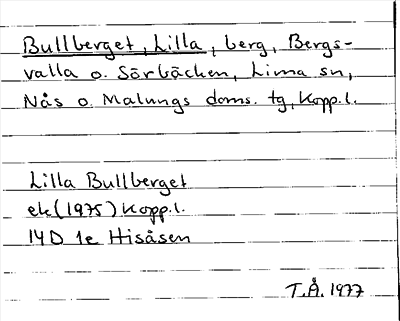 Bullberget, Lilla, berg, Bergs-
valla o. Sörbäcken, Lima sn,
Nås o. Malungs doms. tg, Kopp.l.
Lilla Bullberget
ek(1975) Kopp.l.
14D 1e Hisåsen
T.Å. 1977